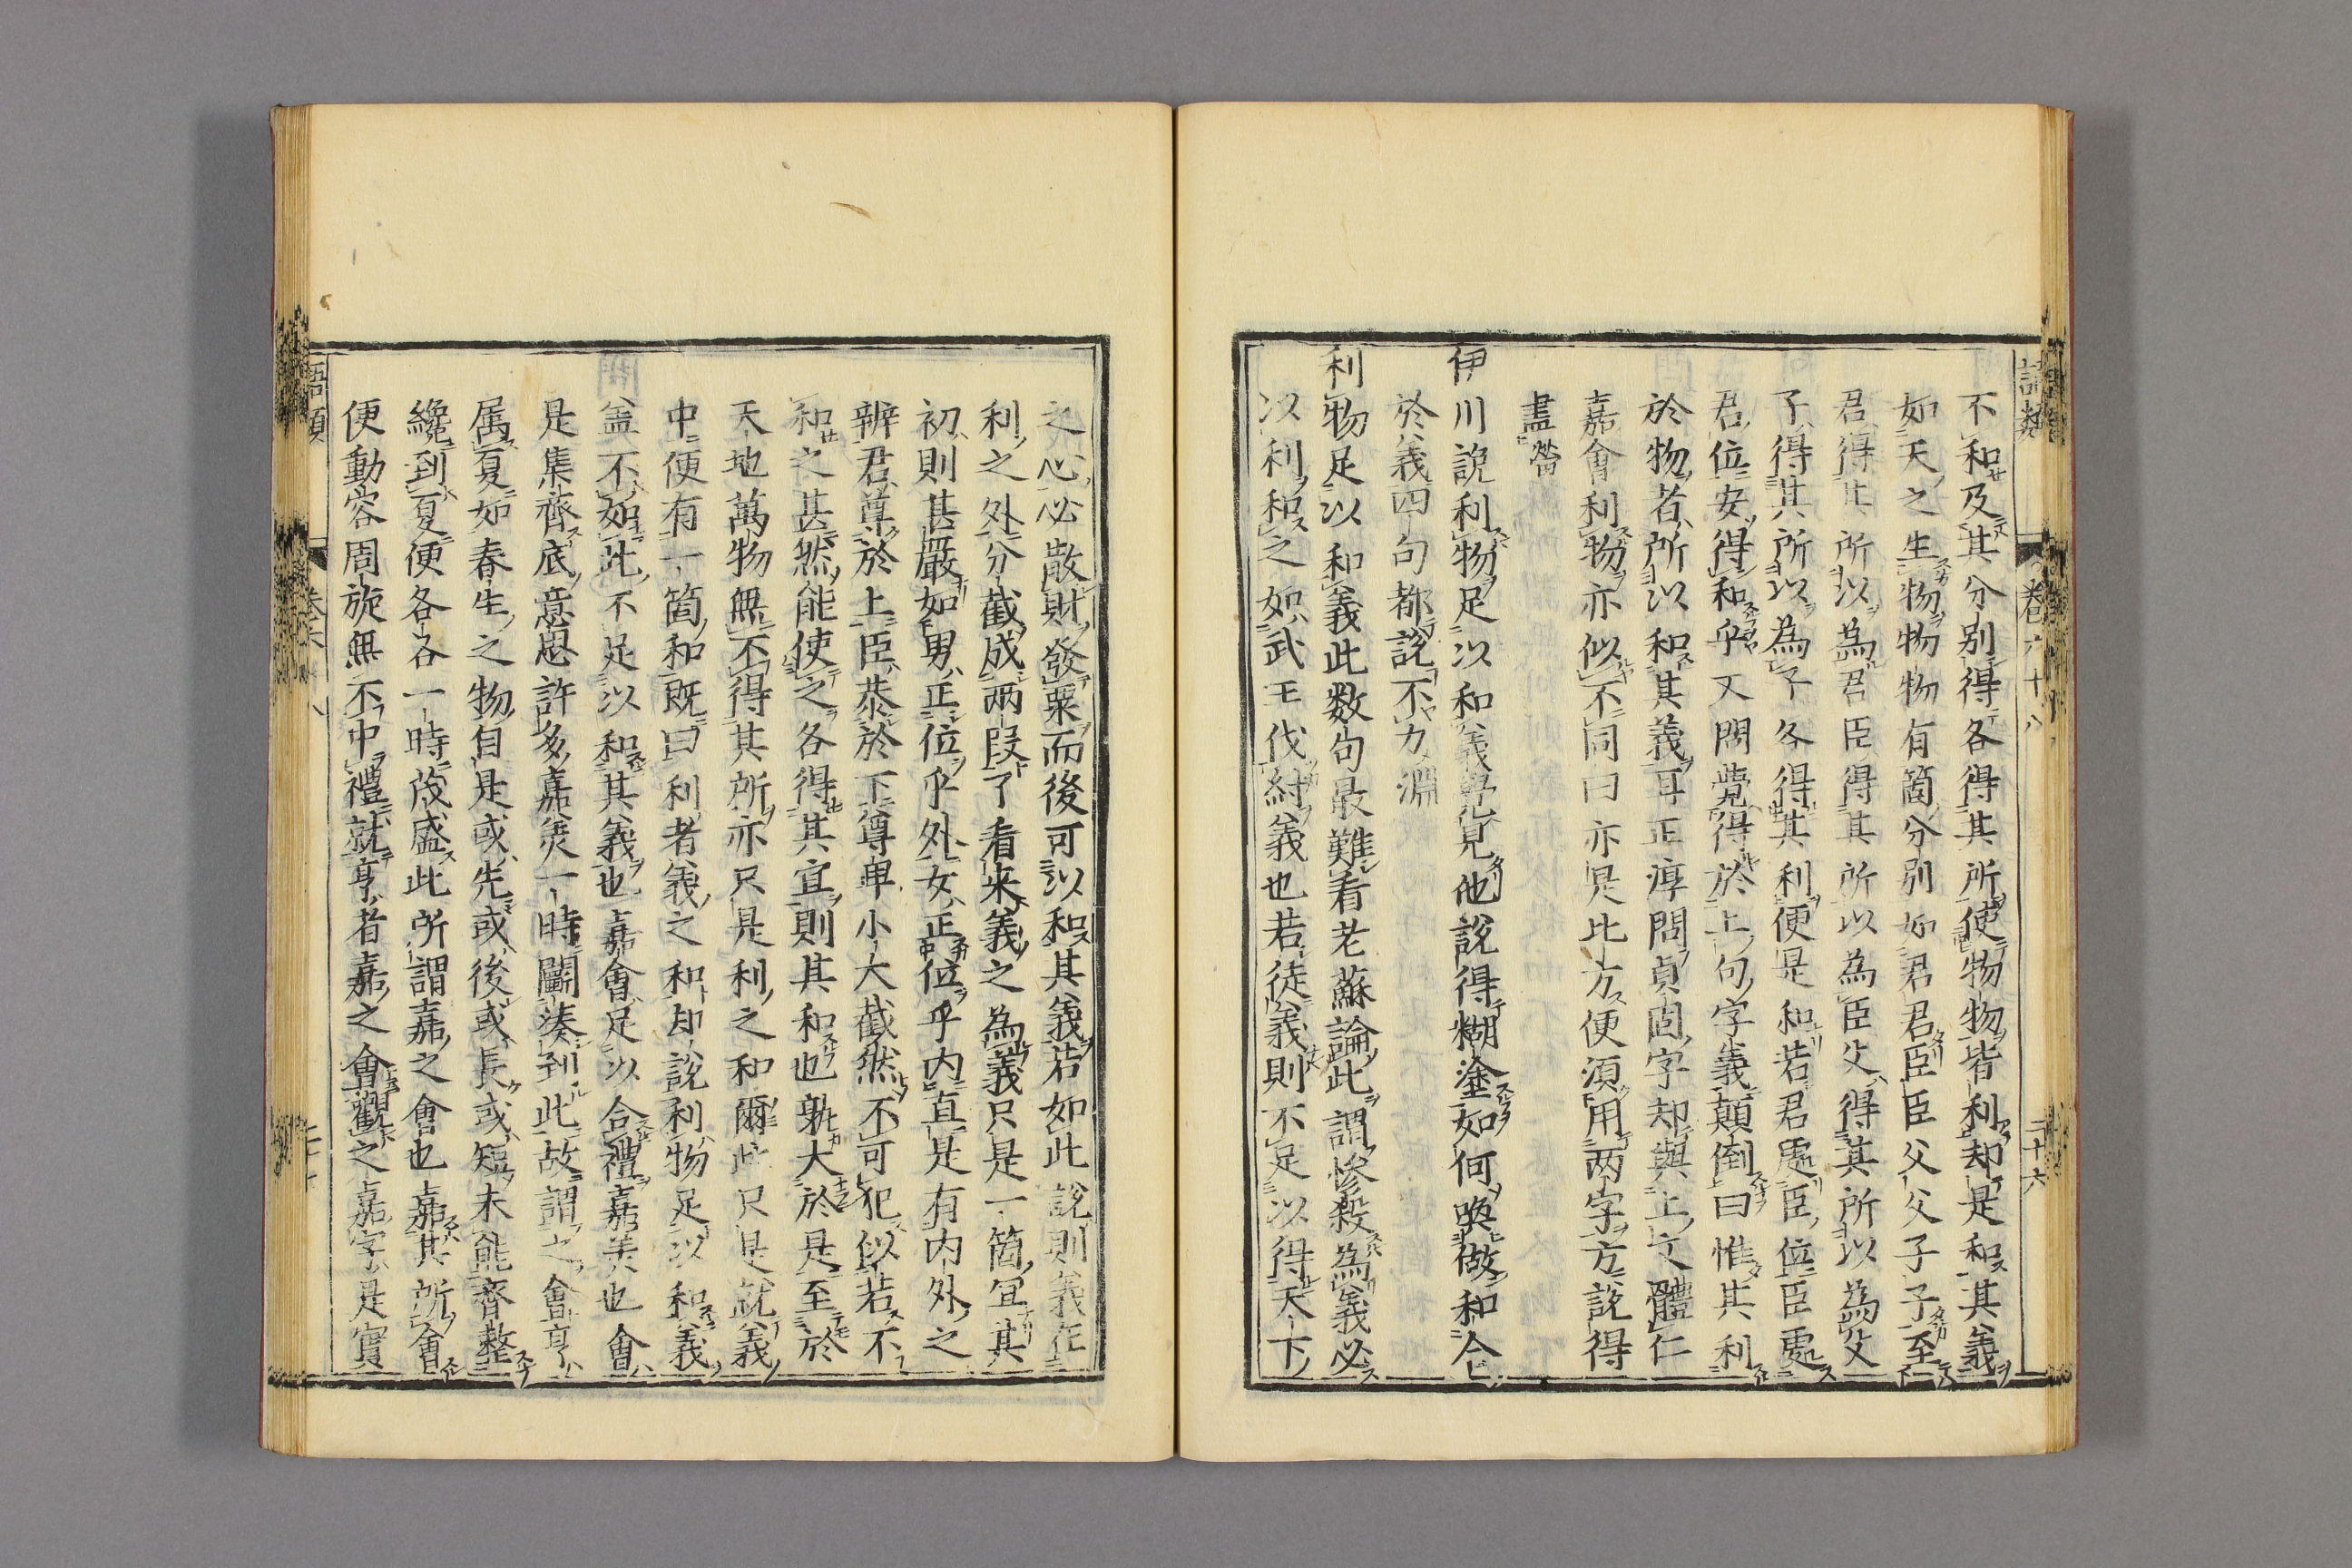 語類 卷六十八 二十六
不和及其分別得各得其所使物物皆利却是和其義
如天之生物物物有箇分別如君君臣臣父父子子至
君得其所以為君臣得其所以為臣父得其所以為父
子得其所以為子各得其利便是和若君處臣位臣處
君位安得和乎又問覺得於上句字義顛倒曰惟其利
於物者所以和其義耳正淳問貞固字却與上文體仁
嘉會利物亦似不同曰亦是比方便須用兩字方說得
盡㽦
伊川說利物足以和義覺見他說得糊塗如何喚做和合
於義四句都說不力淵
利物足以和義此数句最難看老蘇論此謂慘殺為義必
以利和之如武王伐紂義也若徒義則不足以得天下
之心必散財發粟而後可以和其義若如此說則義在
利之外分截成兩段了看来義之為義只是一箇宜其
初則甚嚴如男正位乎外女正位乎内直是有内外之
辨君尊於上臣恭於下尊卑小大截然不可犯似若不
和之甚然能使之各得其宜則其和也孰大於是至於
天地萬物無不得其所亦只是利之和爾此只是就義
中便有一箇和既曰利者義之和却說利物足以和義
盖不如此不足以和其義也嘉會足以合禮嘉美也會
是集齊底意思許多嘉美一時闘湊到此故謂之會亨
属夏如春生之物自是或先或後或長或短未能齊整
纔到夏便各各一時茂盛此所謂嘉之會也嘉其所會
便動容周旋無不中禮就亨者嘉之會觀之嘉字是實